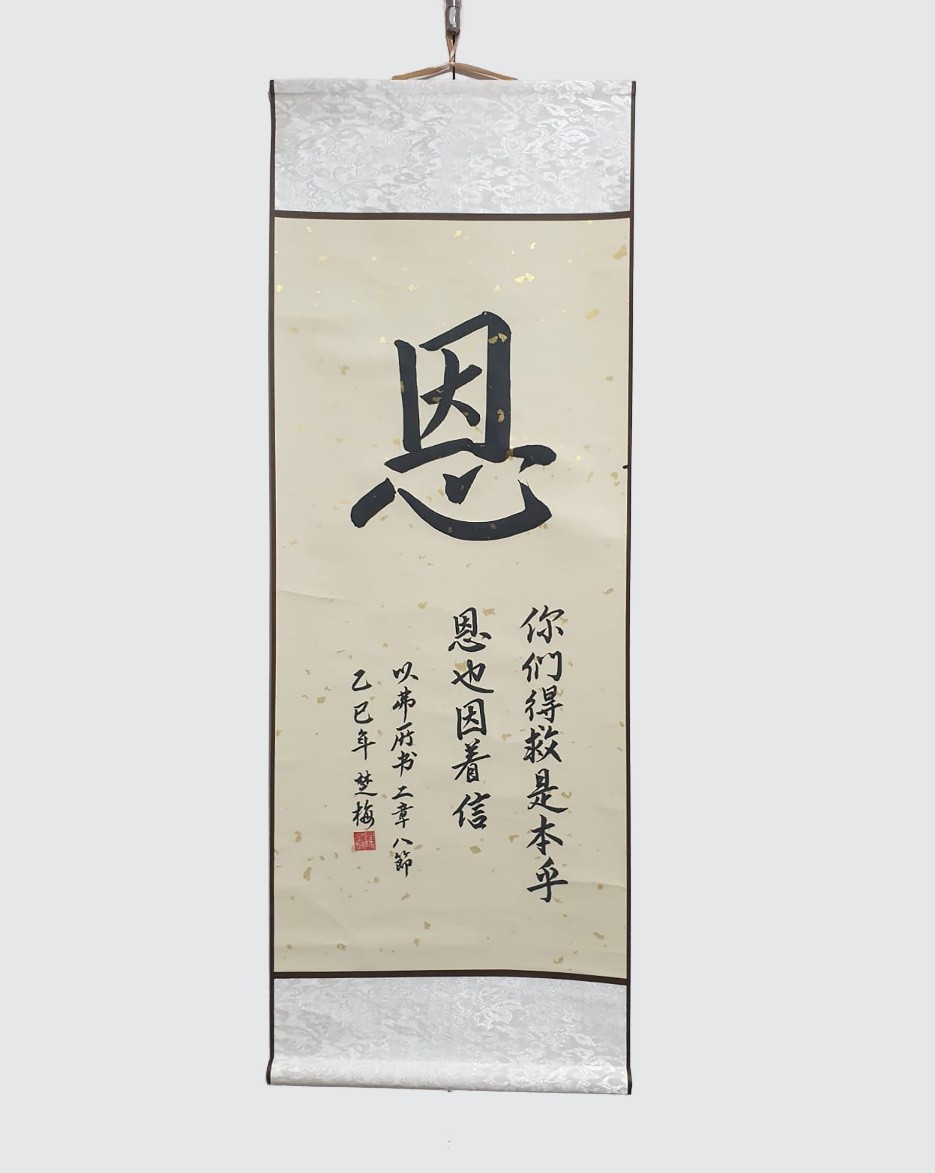 恩
你们得救是本乎
恩也因着信
以弗所书二章八節
乙巳年 楚梅